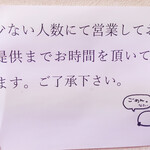 少ない人数にて営業してお
提供までお時間を頂いて
ます。ご了承下さい。
ごめん。